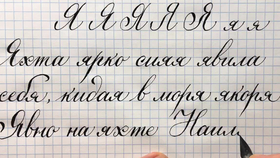 Я Я Я Я Я я я
Яхта ярко сияя явила
себя, кидая в моря якоря
Явно на яхте Наил